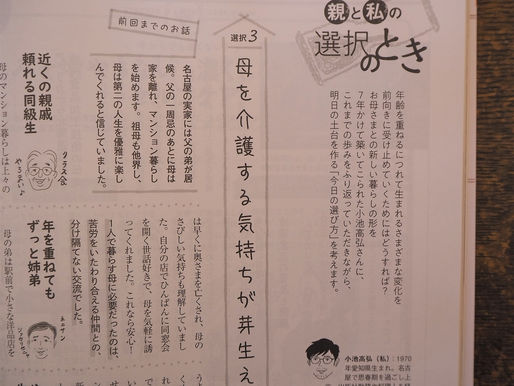 親と私の
選択のとき
年齢を重ねるにつれて生まれるさまざまな変化を
前向きに受け止めていくためにはどうすれば?
お母さまとの新しい暮らしの形を
7年かけて築いてこられた小池高弘さんに、
これまでの歩みをふり返っていただきながら、
明日の土台を作る「今日の選び方」を考えます。
小池高弘(私):1970
年愛知県生まれ。名古
屋で思春期を過ごし上
選択3
母を介護する気持ちが芽生え
前回までのお話
名古屋の実家には父の弟が居
候。父の一周忌のあとに母は
家を離れ、マンション暮らし
を始めます。祖母も他界し、
母は第二の人生を優雅に楽し
んでくれると信じていました。
近くの親戚
頼れる同級生
クラス会
やろまい♪
母のマンション暮らしは上々の
は早くに奥さまを亡くされ、母の
さびしい気持ちも理解していまし
た。自分の店でひんぱんに同窓会
を開く世話好きで、母を気軽に誘
ってくれました。これなら安心!
1人で暮らす母に必要だったのは、
苦労をいたわり合える仲間との、
分け隔てない交流でした。
年を重ねても
ずっと姉弟
ネエサン
母の弟は駅前で小さな洋品店を